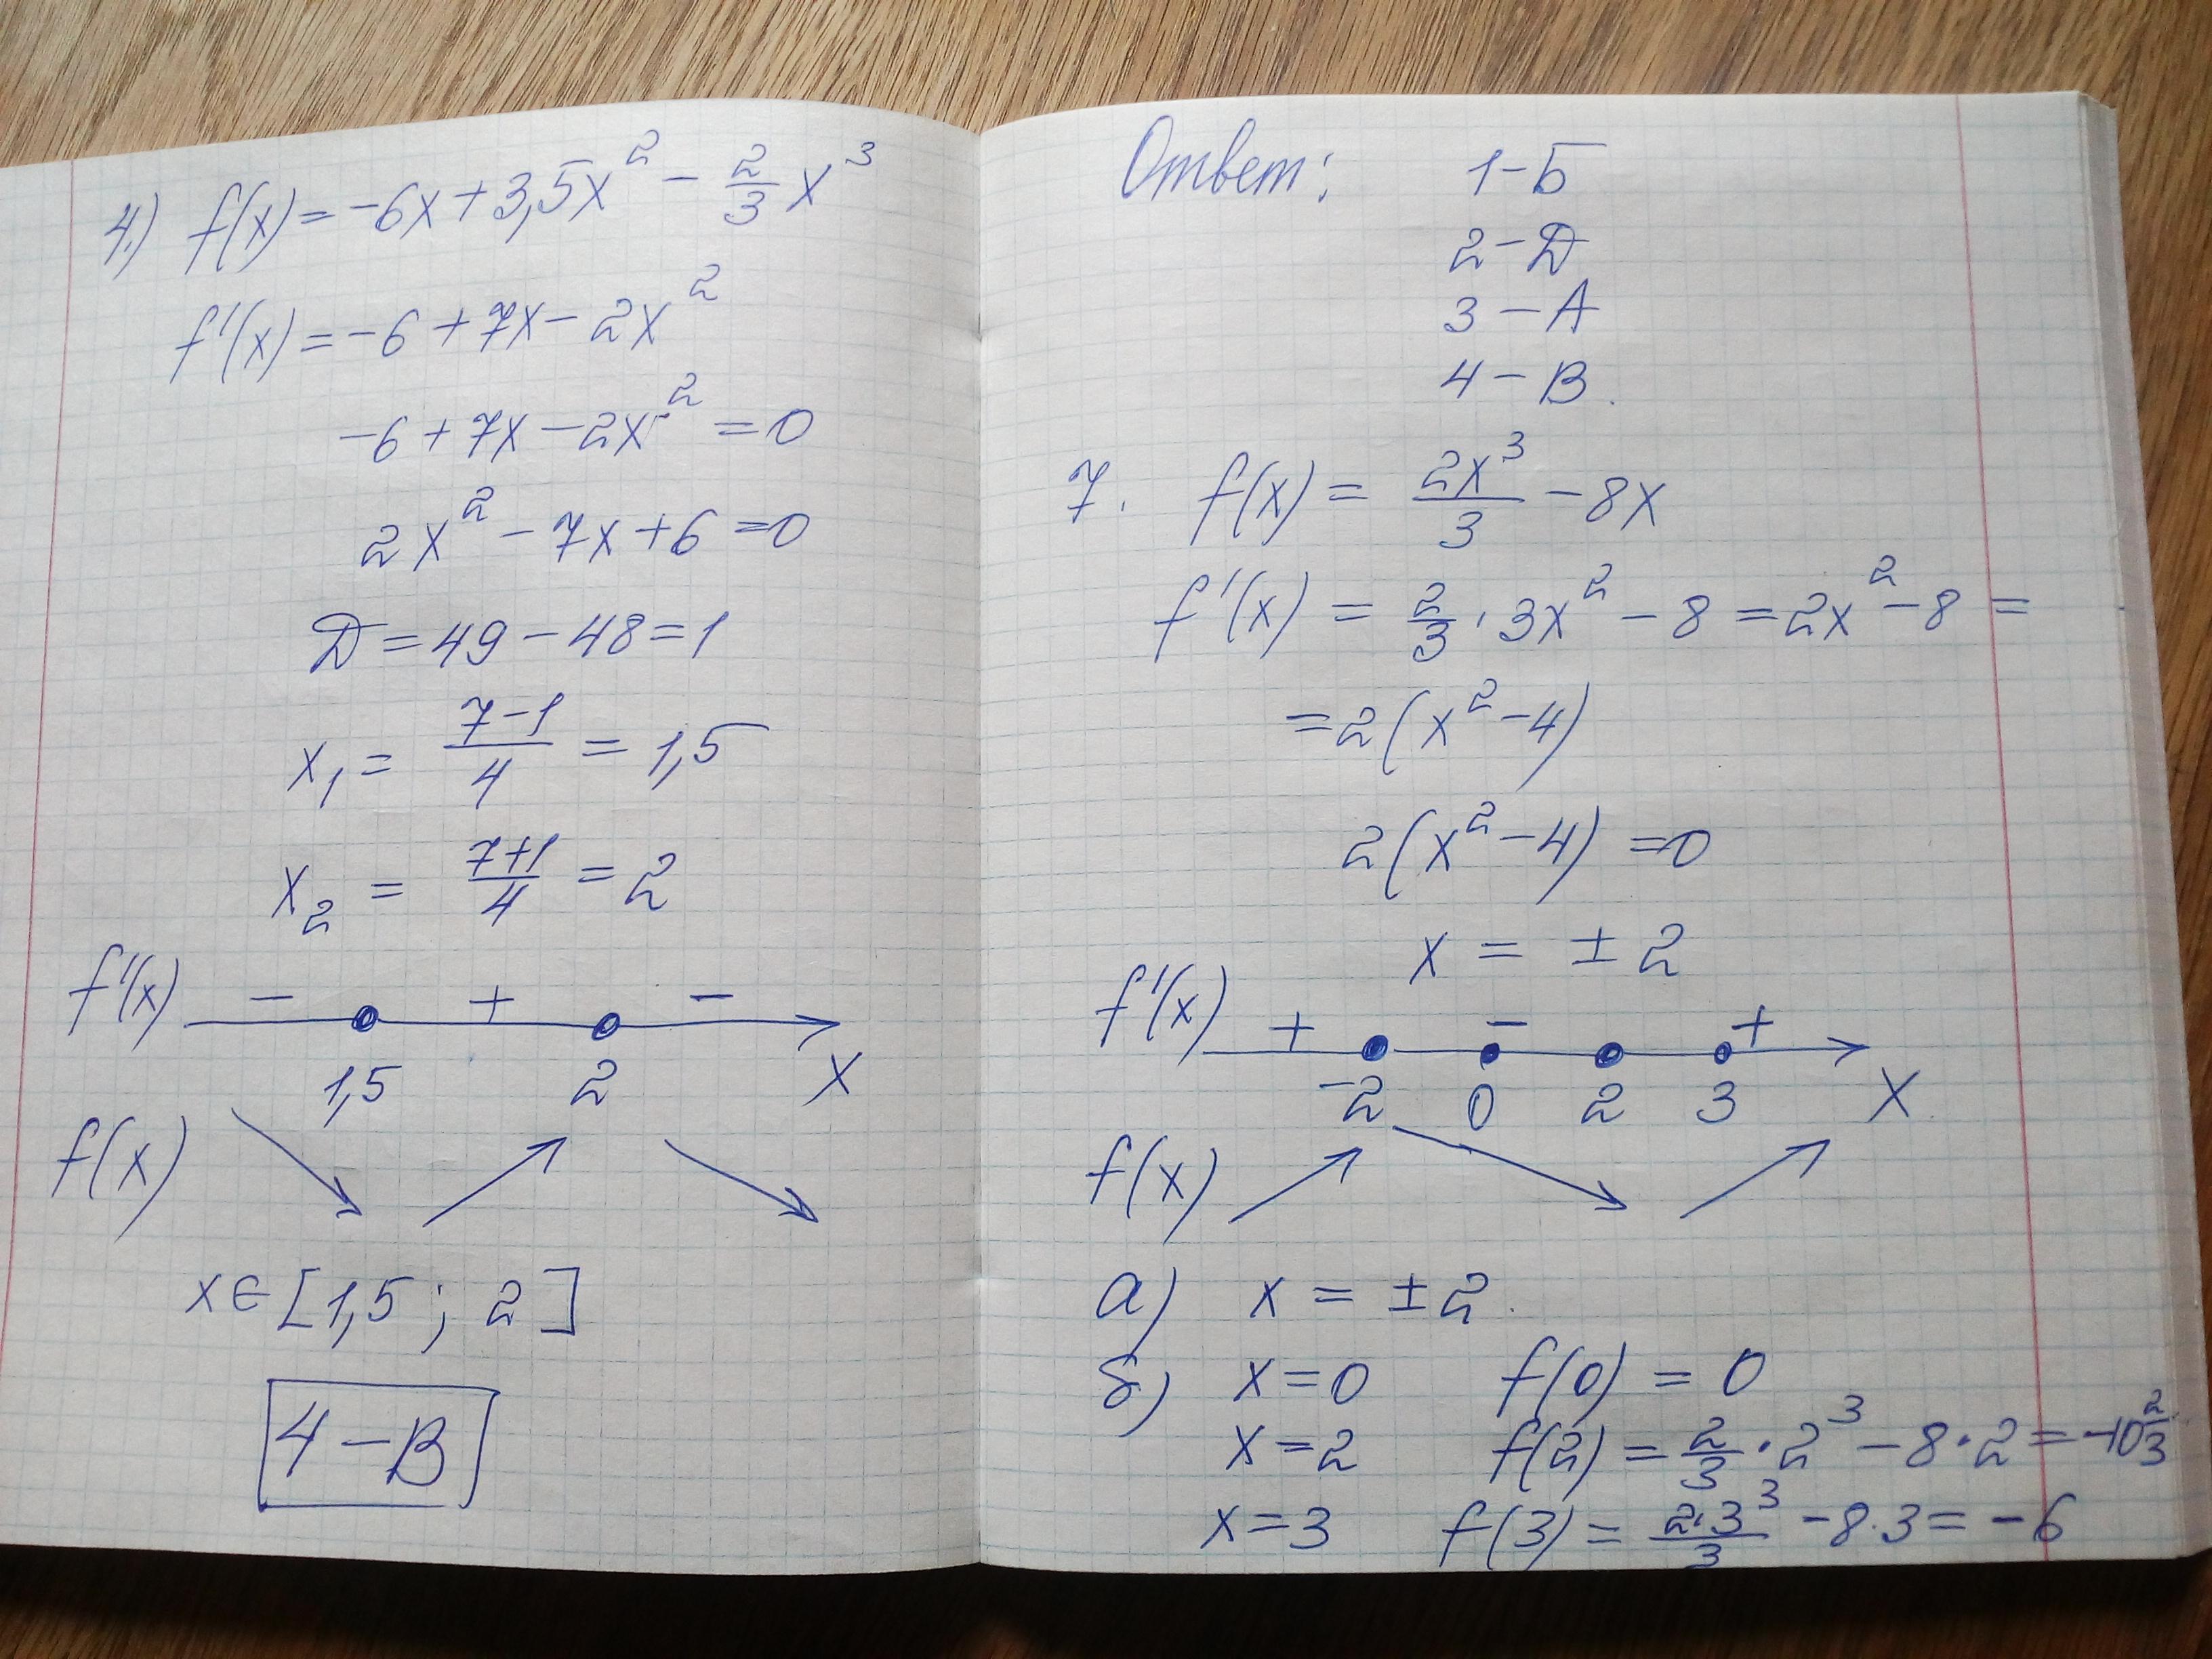 4.) f(x) = -6x + 3,5x² - 2/3 x³
f'(x) = -6 + 7x - 2x²
-6 + 7x - 2x² = 0
2x² - 7x + 6 = 0
Д = 49 - 48 = 1
x₁ = (7-1)/4 = 1,5
x₂ = (7+1)/4 = 2
f'(x) - + -
1,5 2 x
f(x)
x ∈ [1,5 ; 2]
4 - В
Ответ: 1 - Б
2 - Д
3 - А
4 - В.
7. f(x) = 2x³/3 - 8x
f'(x) = 2/3 · 3x² - 8 = 2x² - 8 =
= 2(x² - 4)
2(x² - 4) = 0
x = ± 2
f'(x) + - +
-2 0 2 3 x
f(x)
а) x = ± 2.
б) x = 0 f(0) = 0
x = 2 f(2) = 2/3 · 2³ - 8 · 2 = -10 2/3
x = 3 f(3) = 2·3³/3 - 8·3 = -6